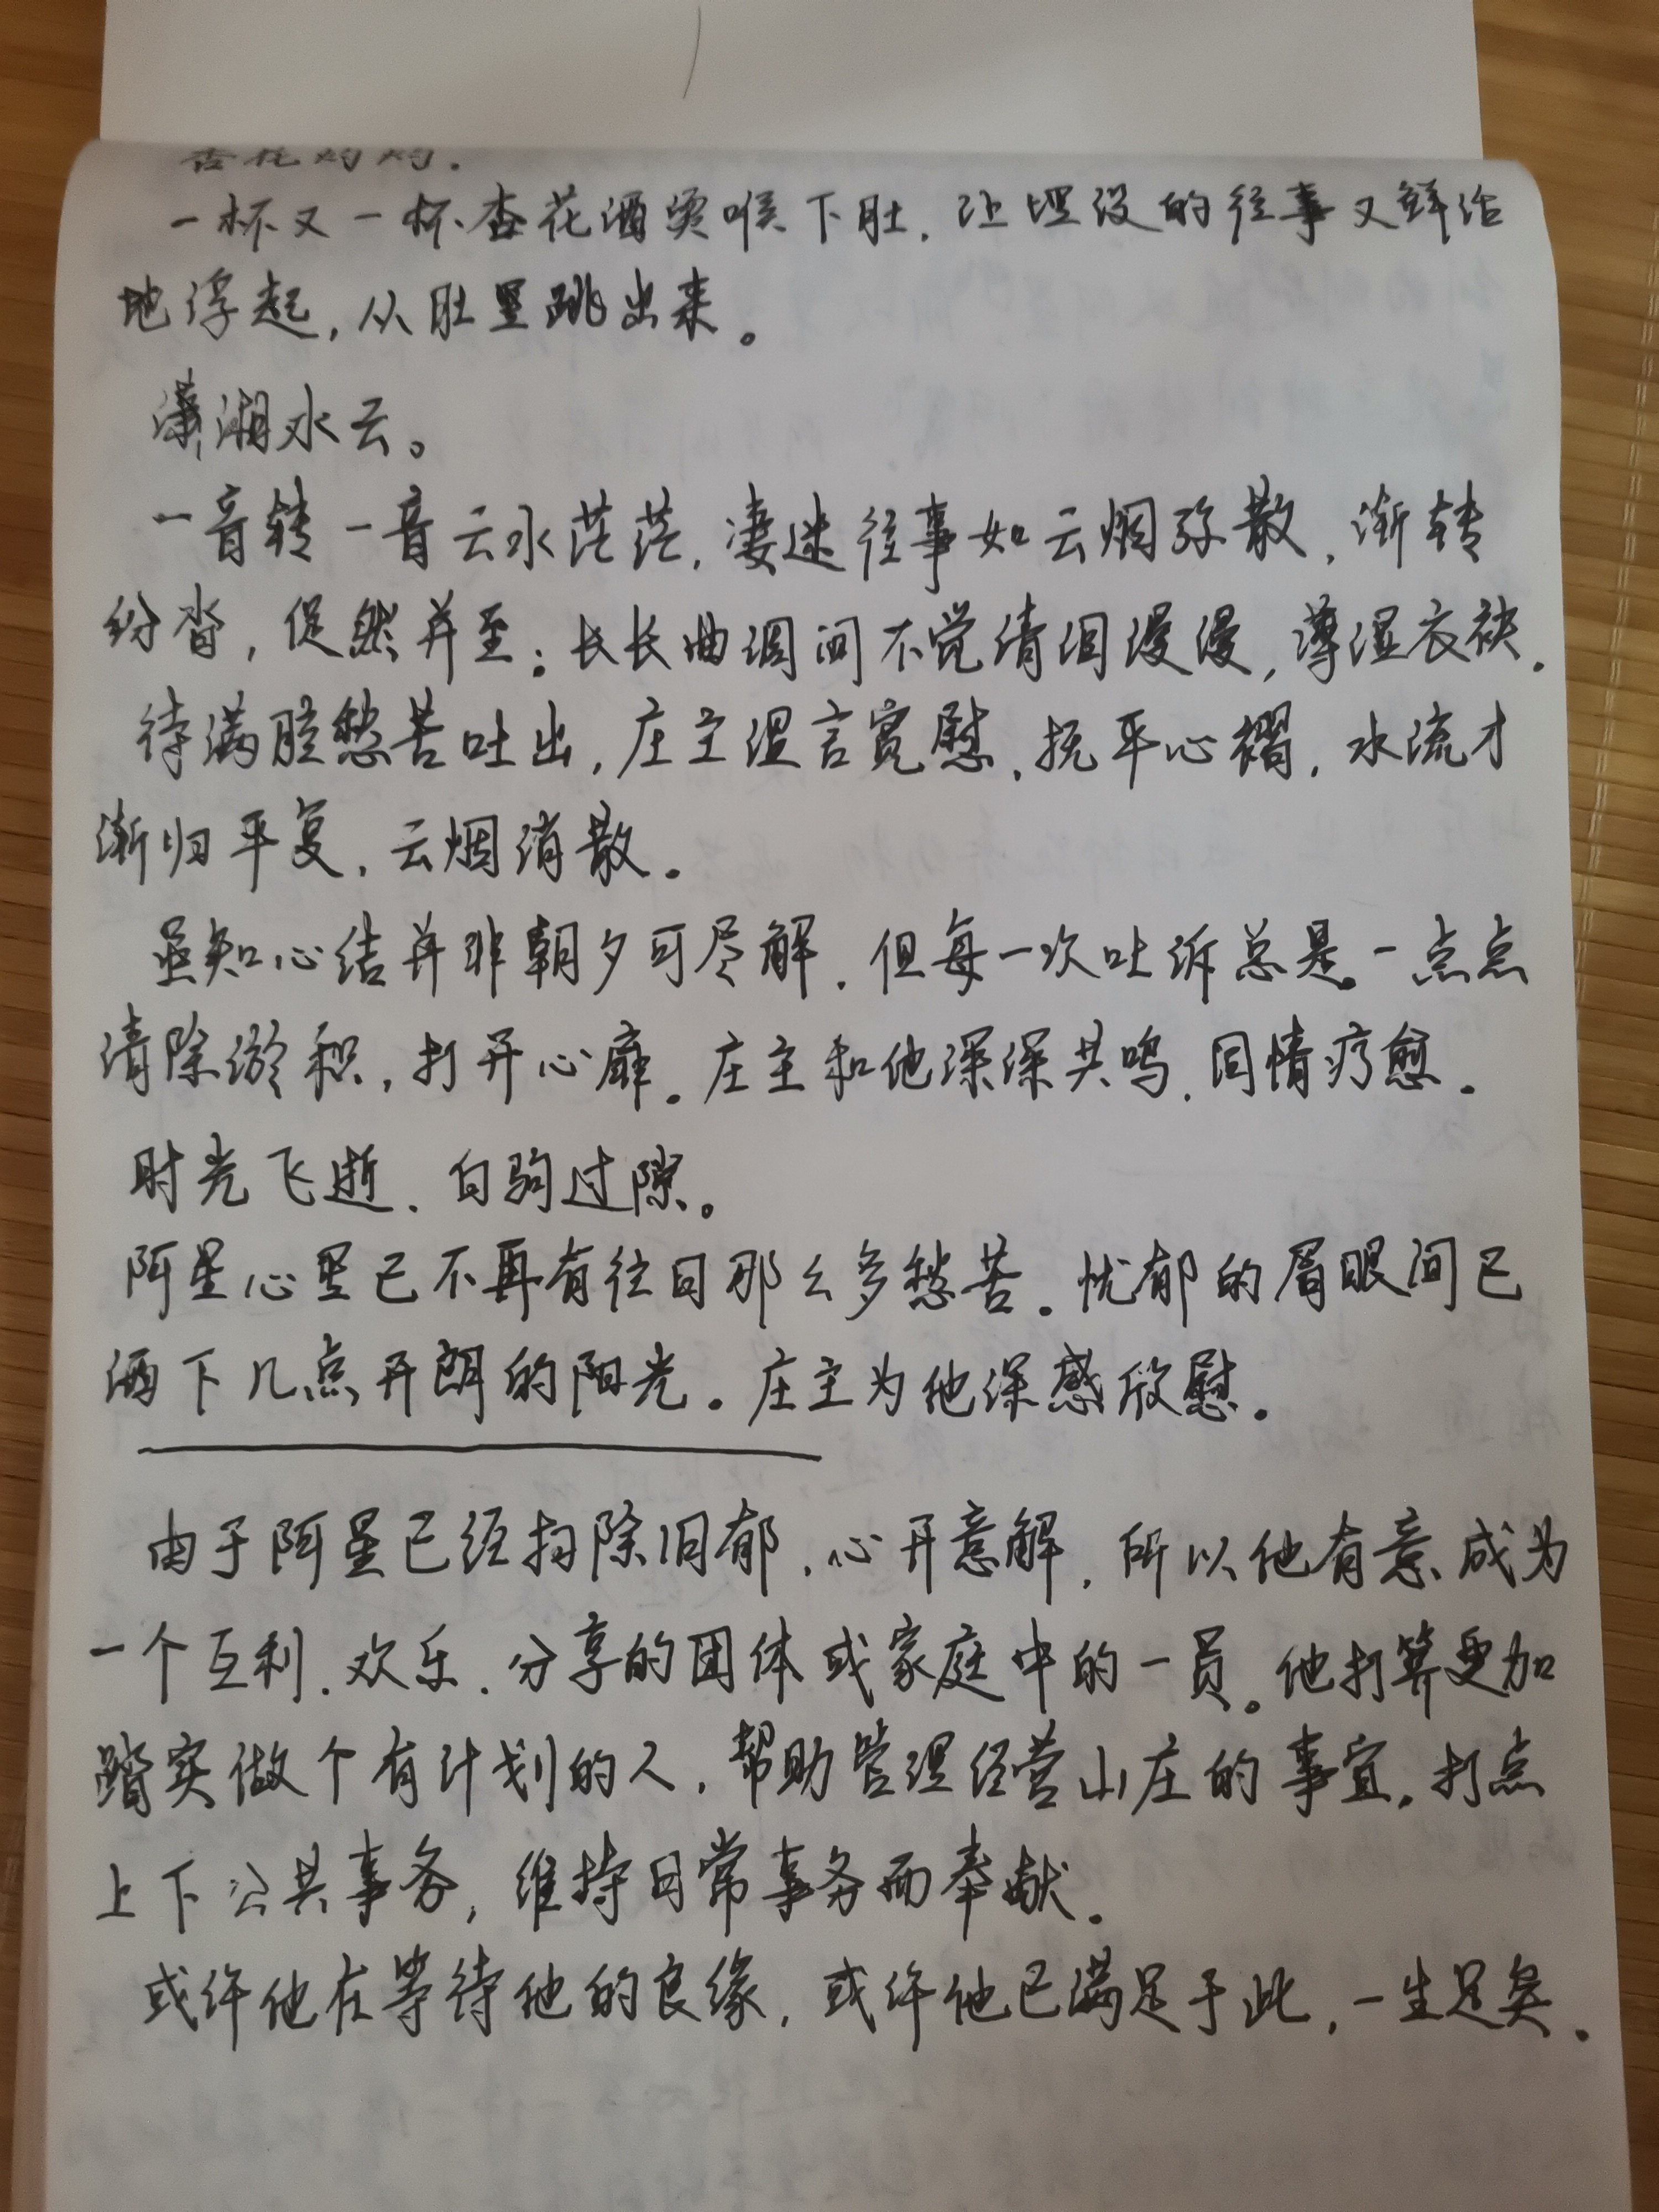 杏花灼灼.
一杯又一杯杏花酒烫喉下肚,让埋没的往事又鲜活
地浮起,从肚里跳出来。
潇湘水云。
一音转一音云水茫茫,凄迷往事如云烟弥散,渐转
纷沓,促然并至;长长曲调间不觉清泪漫漫,薄湿衣袂.
待满腔愁苦吐出,庄主温言宽慰,抚平心褶,水流才
渐归平复,云烟消散.
虽知心结并非朝夕可尽解,但每一次吐诉总是一点点
清除淤积,打开心扉。庄主和他深深共鸣,同情疗愈.
时光飞逝、白驹过隙。
阿星心里已不再有往日那么多愁苦。忧郁的眉眼间已
洒下几点开朗的阳光。庄主为他深感欣慰.
由于阿星已经扫除旧郁,心开意解,所以他有意成为
一个互利、欢乐、分享的团体或家庭中的一员。他打算更加
踏实做个有计划的人,帮助管理经营山庄的事宜,打点
上下公共事务,维持日常事务而奉献.
或许他在等待他的良缘,或许他已满足于此,一生足矣.